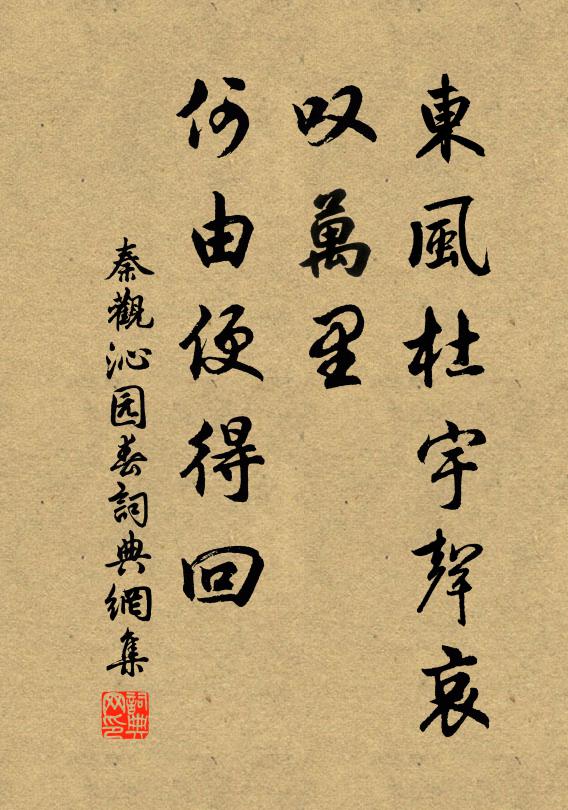 東風杜宇聲哀
叹萬里
何由便得回
秦觀沁园春詞典網集
詞典
网印